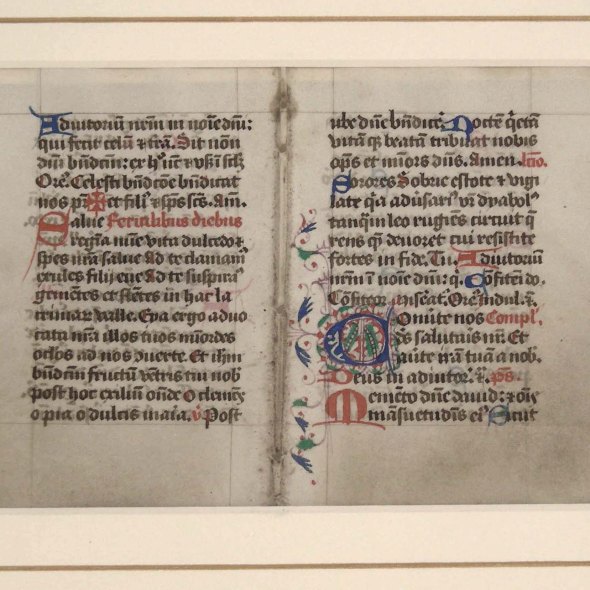 Adiutoriū nr̄m in noīe dn̄i:
qui fecit celū ⁊ trā. Sit nom̄
dn̄i bn̄dictū: ex hͦ
Ore. Celesti bn̄dictōe bn̄dicat
nos pr̄ ✠ et fili⁹ ⁊ sp̄s scs̄. Am̄.
Salue ferialibus diebus
regina mīe vita dulcedo ⁊
spes nr̄a salue Ad te clamam⁹
exules filij eue Ad te suspiram⁹
gemētes et flētes in hac la
crimar̄ valle. Eya ergo aduo
cata nr̄a illos tuos mīcordes
oc̄los ad nos ꝯuerte. Et ih̄m
bn̄dictū fructū vētris tui nob̄
post hoc exiliū onde O clemēs
o pia o dulcis maīa. v̄ Post
iube dn̄e bn̄dicē. Noctem q̄etā
vitā
et beatā tribuat nobis
op̄s et mīcors dn̄s. Amen. lc̄io.
Sorores Sobrie estote ⁊ vigi
late q̄a aduersari⁹ vr̄ dyabol⁹
tanq̄m leo rugiēs circuit q̄
rens quē deuoret cui resistite
fortes in fide. Tu. Adiutoriū
nr̄m ī noīe dn̄i: Cōfiteor dō.
Cōfiteor
Ore. Indul.
Conuerte nos Compl̄.
de⁹ salutaris nr̄. Et
auerte irā tuā a nob̄.
Deus in adiutor̄. ps̄.
Memēto dn̄e dauid: ⁊ oīs
māsuetudīs ei⁹ Sicut